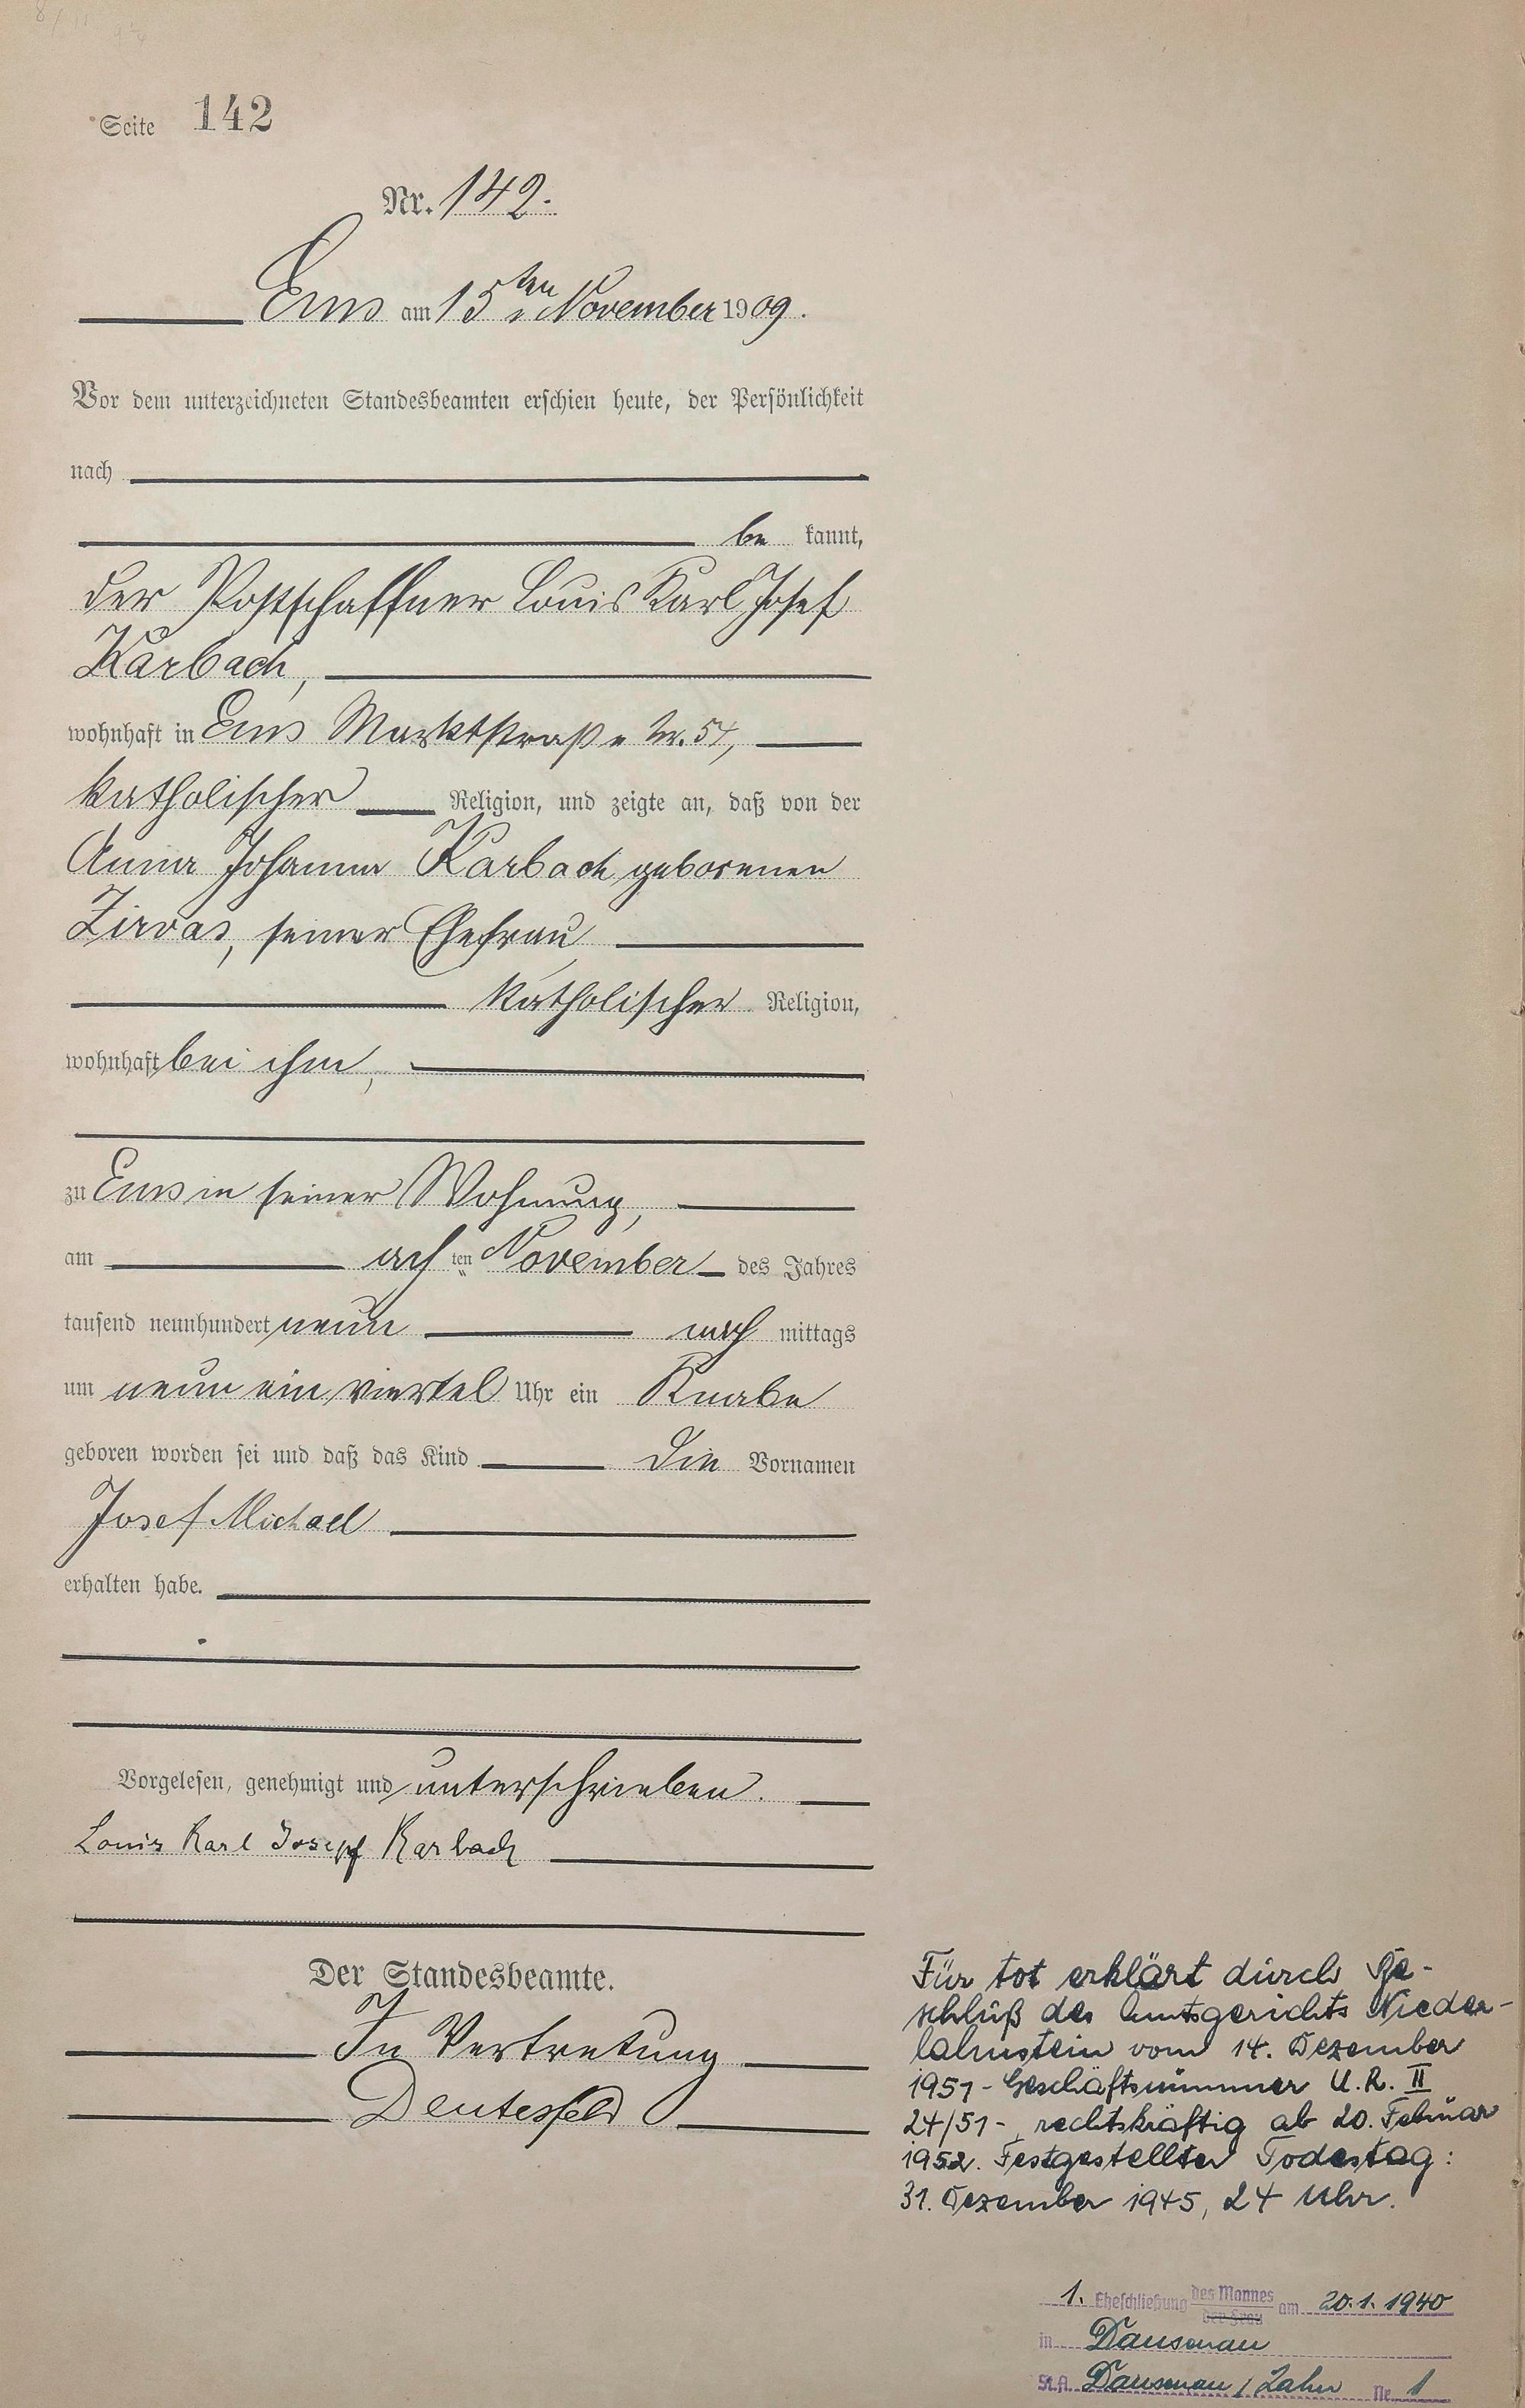 Seite 142
Nr. 142.
Ems am 15ten November 1909.
Vor dem unterzeichneten Standesbeamten erschien heute, der Persönlichkeit
nach
be kannt,
der Postschaffner Louis Karl Josef
Karbach,
wohnhaft in Ems Marktstraße Nr. 54,
katholischer Religion, und zeigte an, daß von der
Anna Johanna Karbach geborenen
Zirvas, seiner Ehefrau,
katholischer Religion,
wohnhaft bei ihm,
zu Ems in seiner Wohnung,
am achten November des Jahres
tausend neunhundert neun nach mittags
um neun ein viertel Uhr ein Knabe
geboren worden sei und daß das Kind die Vornamen
Josef Michael
erhalten habe.
Vorgelesen, genehmigt und unterschrieben.
Louis Karl Josepf Karbach
Der Standesbeamte.
In Vertretung
Deutesfeld
Für tot erklärt durch Be-
schluß des Amtsgerichts Nieder-
lahnstein vom 14. Dezember
1951 - Geschäftsnummer U.R. II
24/51 -, rechtskräftig ab 20. Februar
1952. Festgestellter Todestag:
31. Dezember 1945, 24 Uhr.
1. Eheschließung des Mannes der Frau am 20.1.1940
in Dausenau
St.A. Dausenau / Lahn Nr. 1